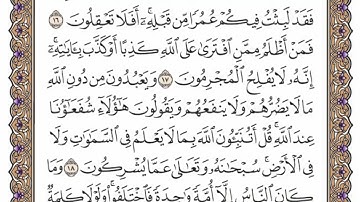 فَقَدْ لَبِثْتُ فِيكُمْ عُمُرًا مِّن قَبْلِهِۦٓ ۚ أَفَلَا تَعْقِلُونَ ١٦
فَمَنْ أَظْلَمُ مِمَّنِ ٱفْتَرَىٰ عَلَى ٱللَّهِ كَذِبًا أَوْ كَذَّبَ بِـَٔايَـٰتِهِۦٓ ۚ
إِنَّهُۥ لَا يُفْلِحُ ٱلْمُجْرِمُونَ ١٧ وَيَعْبُدُونَ مِن دُونِ ٱللَّهِ
مَا لَا يَضُرُّهُمْ وَلَا يَنفَعُهُمْ وَيَقُولُونَ هَـٰٓؤُلَآءِ شُفَعَـٰٓؤُنَا
عِندَ ٱللَّهِ ۚ قُلْ أَتُنَبِّـُٔونَ ٱللَّهَ بِمَا لَا يَعْلَمُ فِى ٱلسَّمَـٰوَٰتِ وَلَا
فِى ٱلْأَرْضِ ۚ سُبْحَـٰنَهُۥ وَتَعَـٰلَىٰ عَمَّا يُشْرِكُونَ ١٨ وَمَا
كَانَ ٱلنَّاسُ إِلَّآ أُمَّةً وَٰحِدَةً فَٱخْتَلَفُوا۟ ۚ وَلَوْلَا كَلِمَةٌ